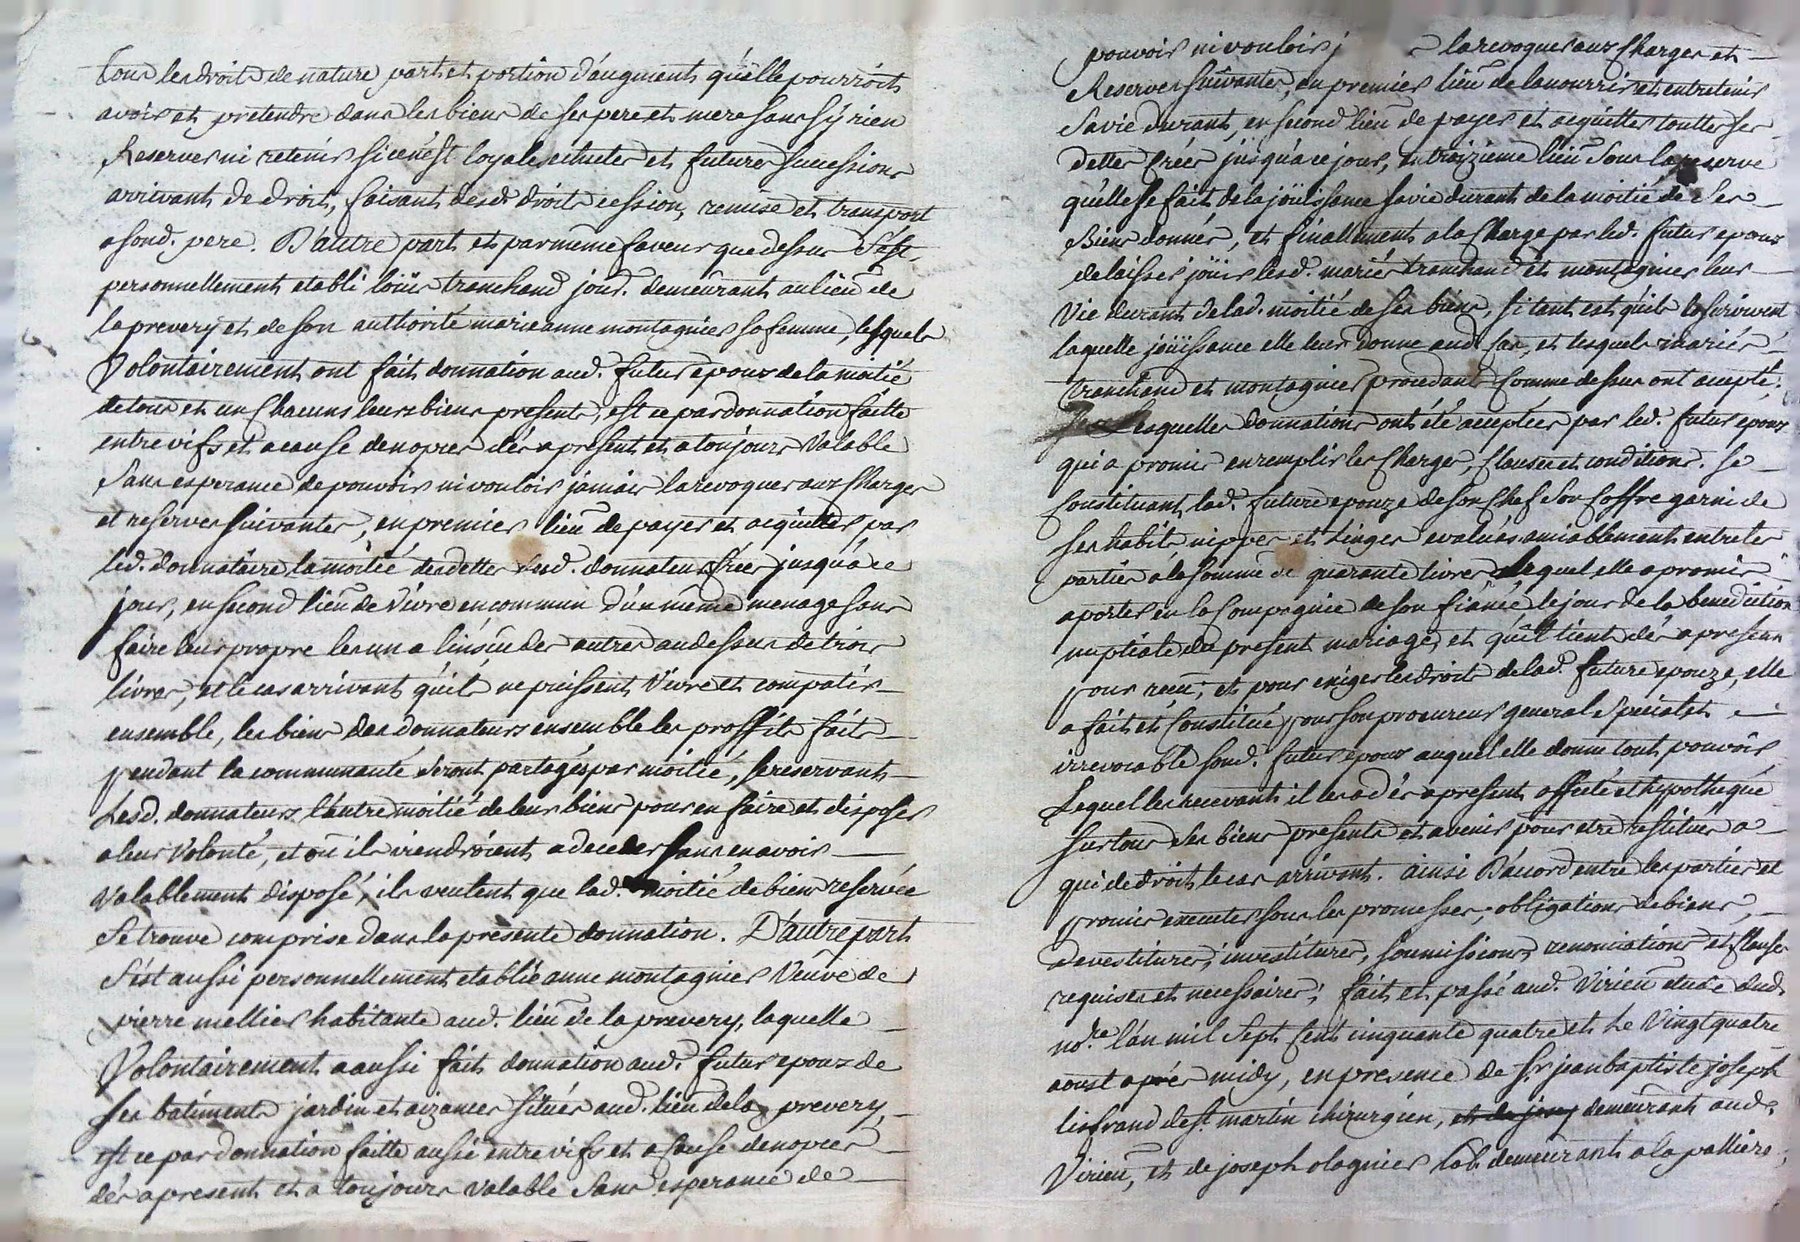 tous les droits de nature part et portion d'augment qu'elle pourroit
avoir et pretendre dans les biens de ses pere et mere sans s'y rien
Reserver ni retenir si ce n'est loyale echute et future successions
arrivant de droit, faisant desd. droits cession, remise et transport
a sond. pere. D'autre part et par même faveur que dessus s'est
personnellement etabli loüis tranchand jourd. demeurant au lieu de
la prevery et de son authorité marie anne montagnier sa femme, lesquels
Volontairement ont fait donnation aud. futur epoux de la moitié
de tous et un chacuns leurs biens presents, est ce par donnation faitte
entre vifs et a cause de nopces dés a present et a toujours valable
Sans esperance de pouvoir ni vouloir jamais la revoquer aux Charges
et reserves suivantes, en premier lieu de payer et acquitter par
led. donnataire la moitié des dettes desd. donnateurs créés jusqu'a ce
jour, en second lieu de vivre en commun d'un même menage sans
faire leur propre les uns a l'insçu des autres au dessus de trois
livres, et le cas arrivant qu'ils ne puissent vivre et compatir
ensemble, les biens des donnateurs ensemble les proffits faits
pendant la communauté seront partagés par moitié, se reservants
Lesd. donnateurs l'autre moitié de leurs biens pour en faire et disposer
a leur volonté, et où ils viendroient a deceder sans en avoir
valablement disposé, ils veulent que lad. moitié de biens reservée
Se trouve comprise dans la présente donnation. D'autre part
s'est aussi personnellement etablie anne montagnier Veuve de
pierre mellier habitante aud. lieu de la prevery, laquelle
Volontairement a aussi fait donnation aud. futur epoux de
ses batiments jardin et aizances situés aud. lieu de la prevery,
est ce par donnation faitte aussi entre vifs et a cause de nopces
dés a present et a toujours valable sans esperance de
pouvoir ni vouloir j la revoquer aux Charges et
Reserves suivantes, en premier lieu de la nourrir et entretenir
sa vie durant, en second lieu de payer et acquitter touttes ses
dettes créés jusqu'a ce jour, en troizieme lieu sous la reserve
qu'elle se fait de la joüissance sa vie durant de la moitié de ses
Biens donnés, et finallement a la Charge par led. futur epoux
de laisser joüir lesd. mariés tranchand et montagnier leur
Vie durant de lad. moitié de ses biens, si tant est qu'ils la survivent
laquelle joüissance elle leur donne aud. cas, et lesquels mariés
tranchand et montagnier procedant comme dessus ont accepté.
Lesquelles donnations ont été acceptées par led. futur epoux
qui a promis en remplir les Charges, Clauses et conditions. Se
Constituant lad. future epouze de son Chef son Coffre garni de
ses habits nippes et Linges evalués amiablement entre les
parties a la somme de quarante livres Lequel elle a promis
aporter en la Compagnie de son fiancé le jour de la benediction
nuptiale du present mariage, et qu'il tient dés a present
pour reçu; et pour exiger les droits de lad. future epouze, elle
a fait et Constitué pour son procureur general special et
irrevocable sond. futur epoux auquel elle donne tout pouvoir
Lequel les recevant il les a dés a present affecté et hypothequé
sur tous ses biens presents et avenir pour etre restitués a
qui de droit le cas arrivant. ainsi D'acord entre les parties et
promis executer sous les promesses, obligations de biens,
devestitures, investitures, soumissions, renonciations et Clauses
requises et necessaires; fait et passé aud. Virieu etude dud.
no.re l'an mil sept cent cinquante quatre et le Vingt quatre
aoust aprés midy, en presence de Sr. jean baptiste joseph
lisfrand de st. martin chirurgien, demeurant aud.
Virieu, et de joseph olagnier lab. demeurant a la palliere,